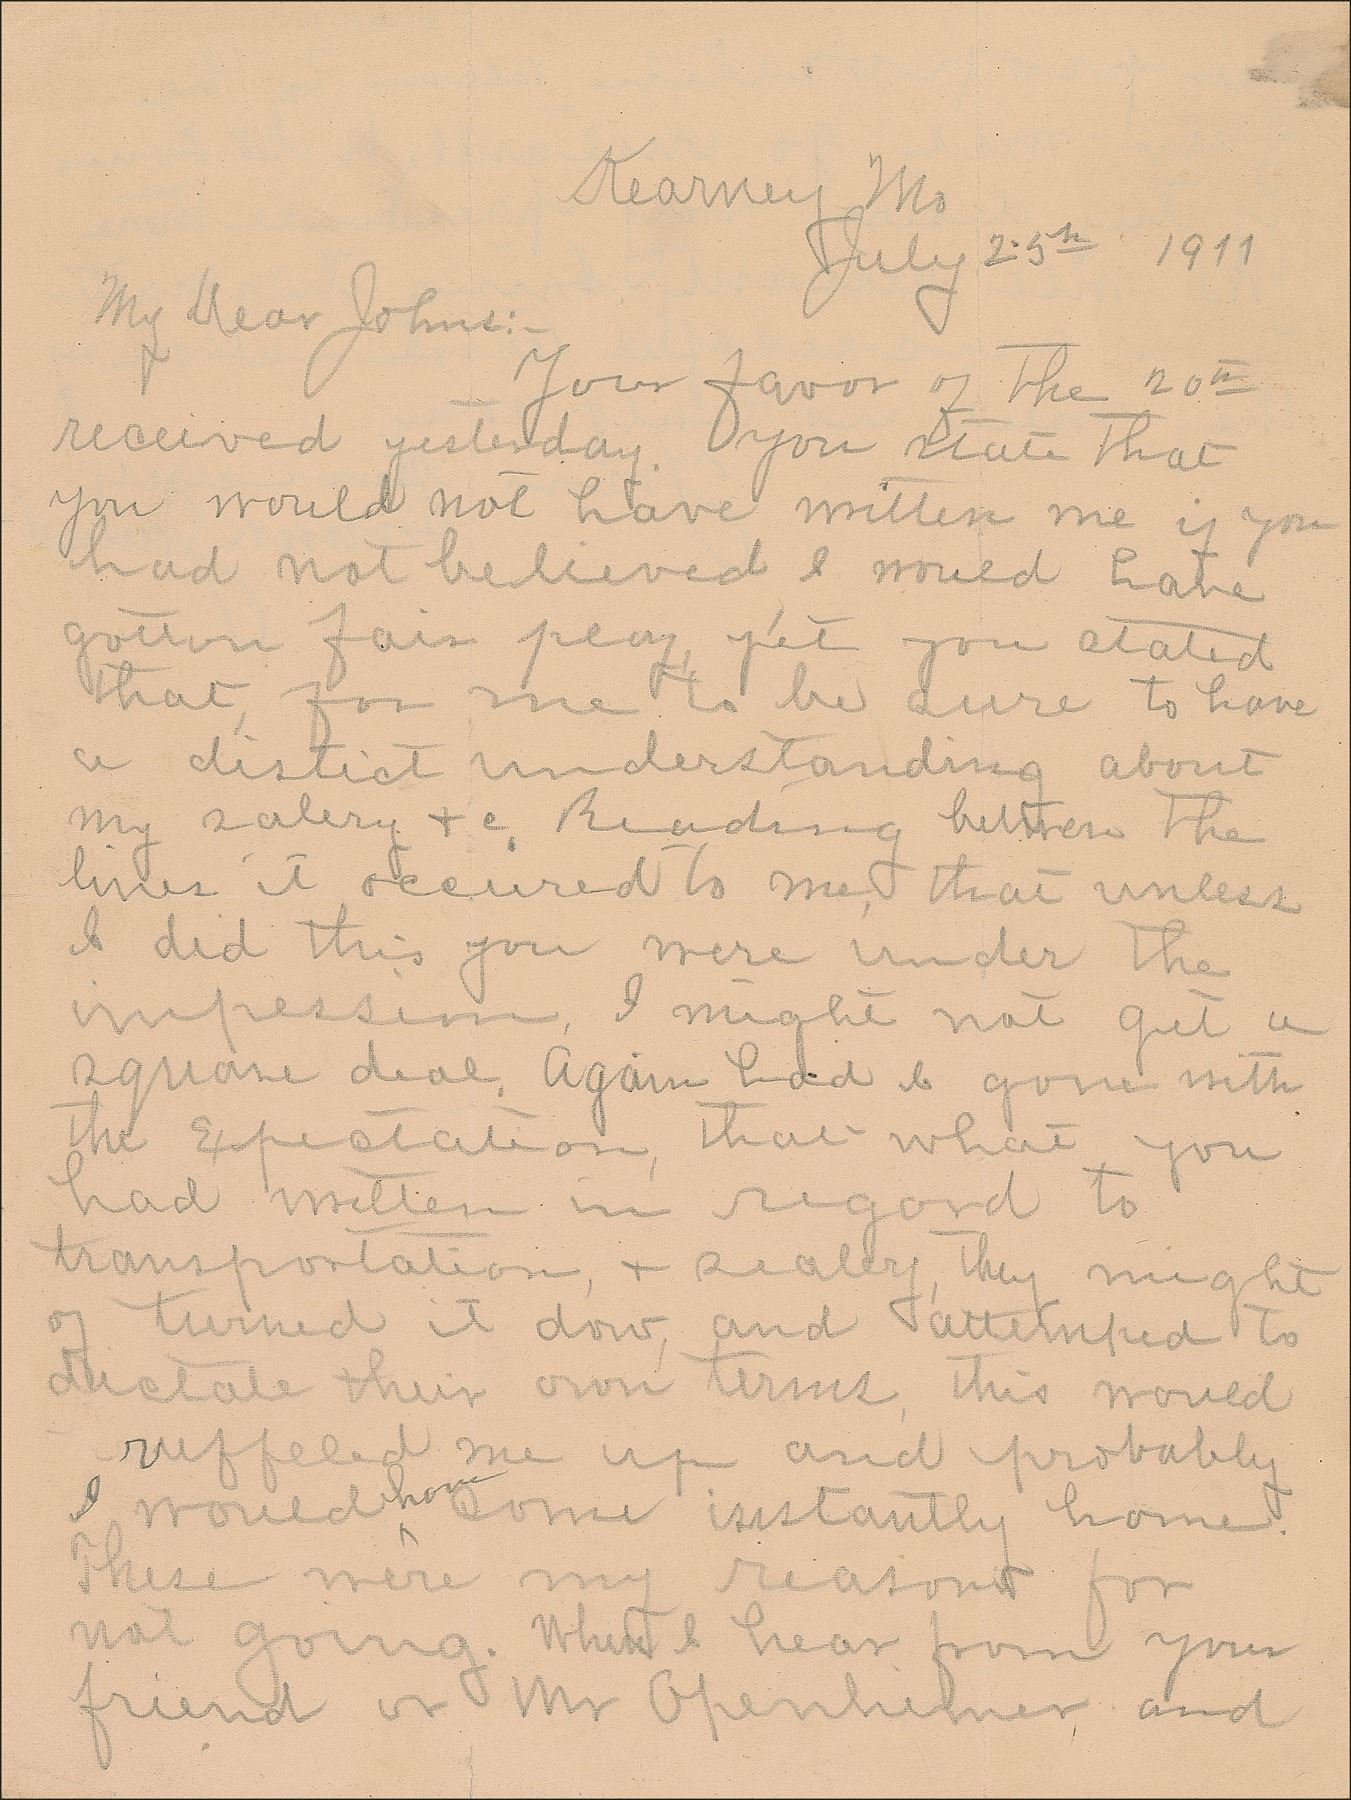 Kearney Mo
July 25th 1911
My Dear Johns:-
Your favor of the 20th
received yesterday. you state that
you would not have written me if you
had not believed I would have
gotten fair play, yet you stated
that, for me to be sure to have
a distict understanding about
my salery + c, Reading between the
lines it occured to me, that unless
I did this you were under the
impession, I might not get a
square deal, Again had I gone with
the Expectation, that what you
had written in regard to
transportation, + sealery, they might
of turned it dow, and attemped to
dictate their own terms, this would
ruffeled me up and probably
I would have Come instantly home.
These were my reasons for
not going. When I hear from your
friend or Mr Openheimer and